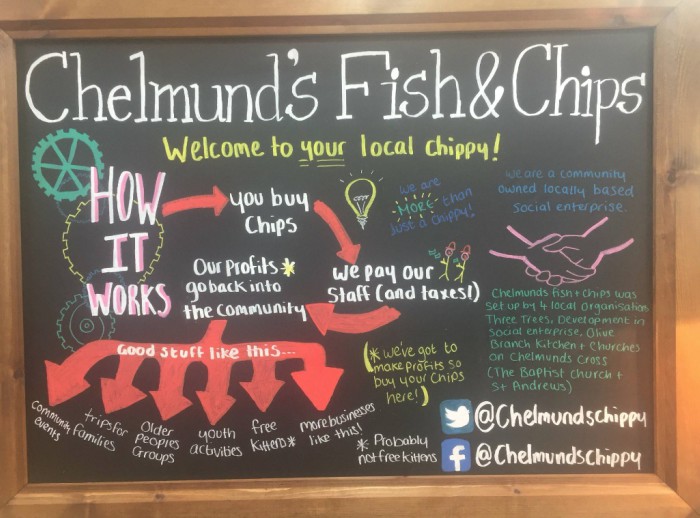 Chelmund's Fish & Chips
Welcome to your local chippy!
HOW
IT
WORKS
you buy
Chips
we pay our
Staff (and taxes!)
Our Profits*
go back into
the community
Good stuff like this...
community
events
trips for
families
Older
Peoples
Groups
youth
activities
free
kittens*
more businesses
like this!
* Probably
not free kittens
(* we've got to
make profits so
buy your chips
here!)
we are
MORE than
just a chippy!
we are a community
owned locally based
social enterprise.
Chelmunds fish + chips was
set up by 4 local organisations
Three Trees, Development in
Social enterprise, Olive
Branch Kitchen + Churches
on Chelmunds Cross
(The Baptist Church +
St Andrews)
@Chelmundschippy
@Chelmundschippy